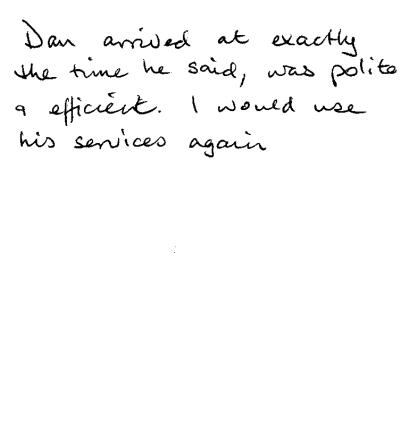 Dan arrived at exactly
the time he said, was polite
& efficient. I would use
his services again